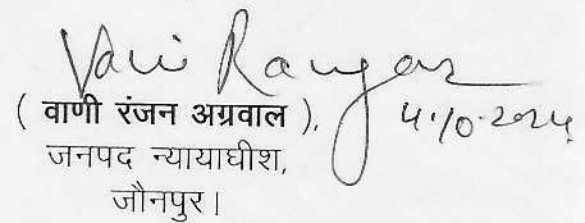 Vani Ranjan
( वाणी रंजन अग्रवाल ), 4.10.2024
जनपद न्यायाधीश,
जौनपुर।